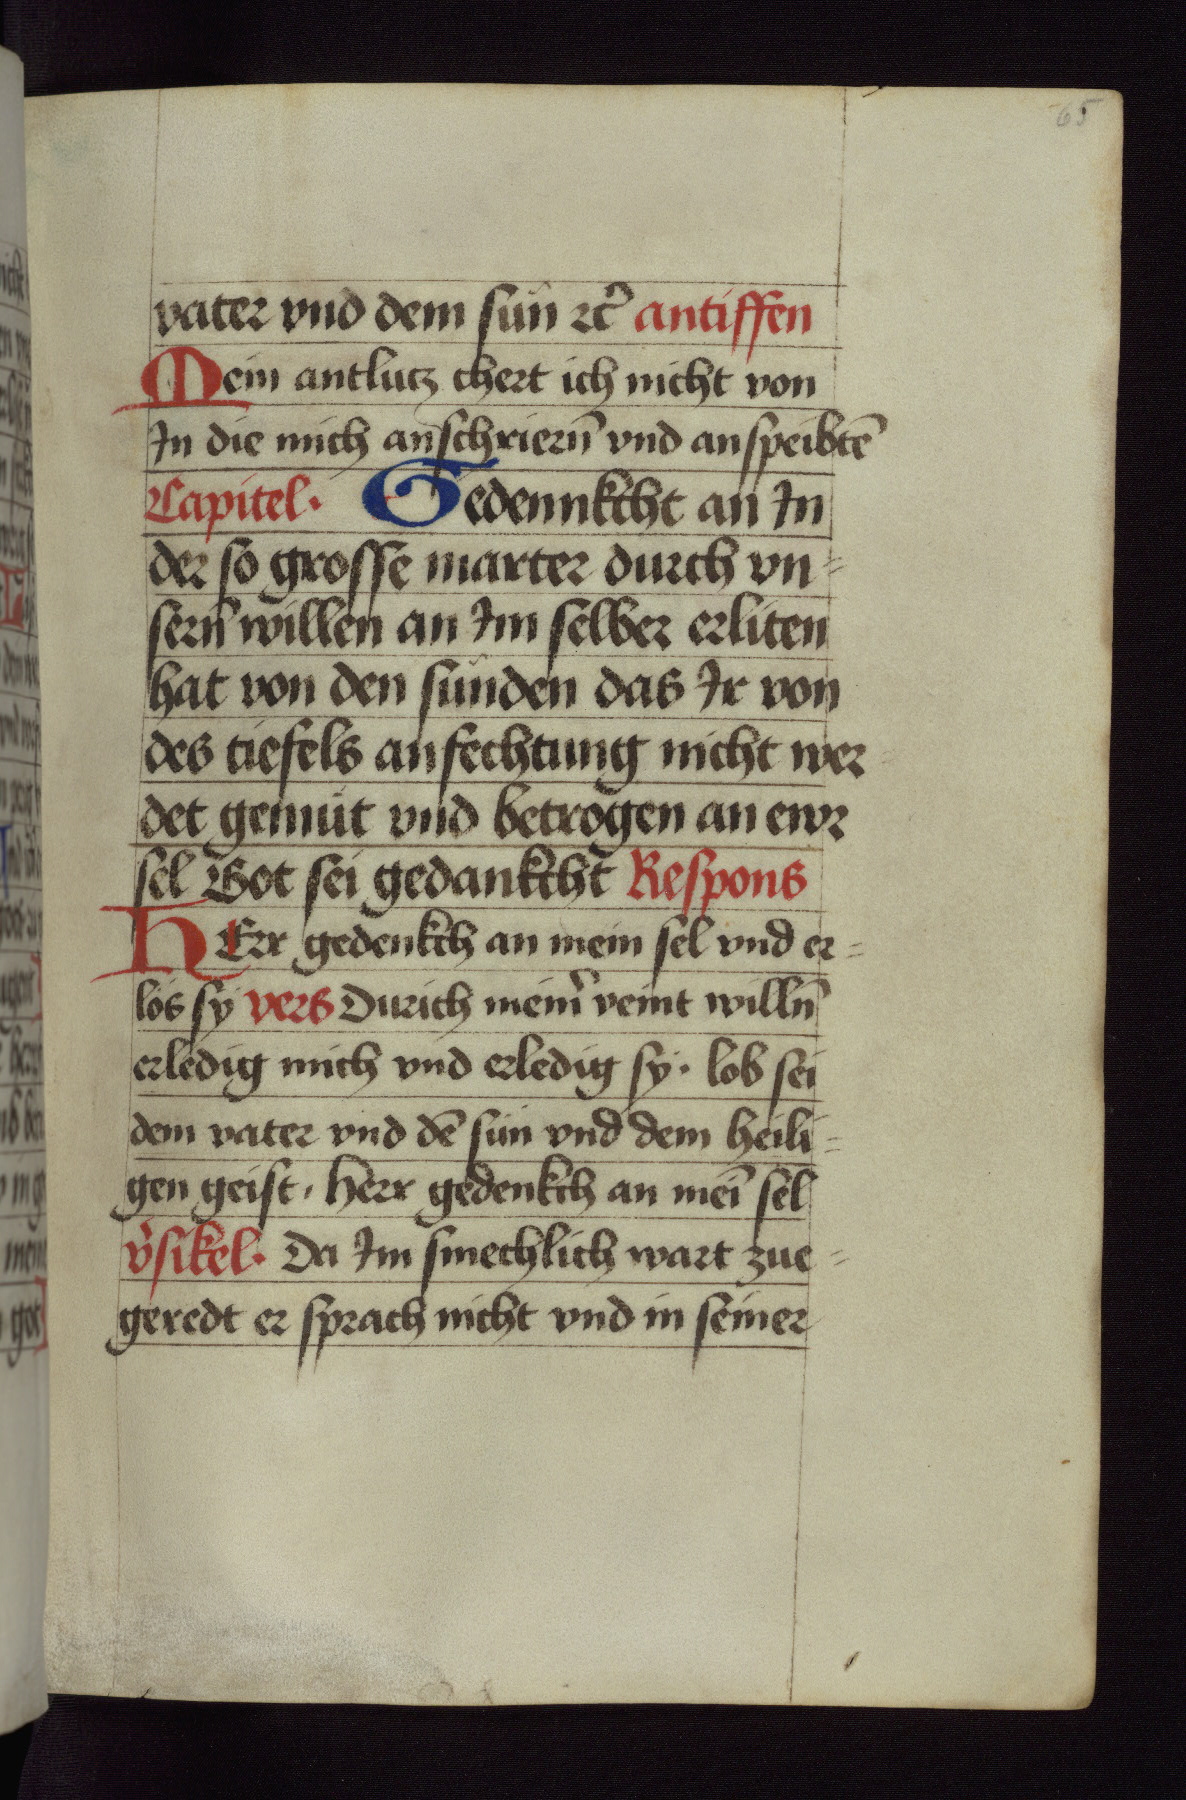 65
vater vnd dem sun ꝛc̄ antiffen
Mein antlutz chert ich nicht von
In die mich anschriern̄ vnd anspeibtē
Capitel. Gedennkcht an In
der so grosse marter durch vn=
sern̄ willen an Im selber erliten
hat von den sünden das Ir von
des tiefels anfechtung nicht wer=
det gemüt vnd betrogen an ewr
sel Got sei gedankcht Respons
HErr gedenkch an mein sel vnd er=
lös sÿ vers Durich mein̄ veint willn̄
erledig mich vnd erledig sÿ. lob sei
dem vater vnd dē sün vnd dem heili=
gen geist. herr gedenkch an mei̅ sel
v̉sikel. Da Im smechlich wart zue=
geredt er sprach nicht vnd in seiner